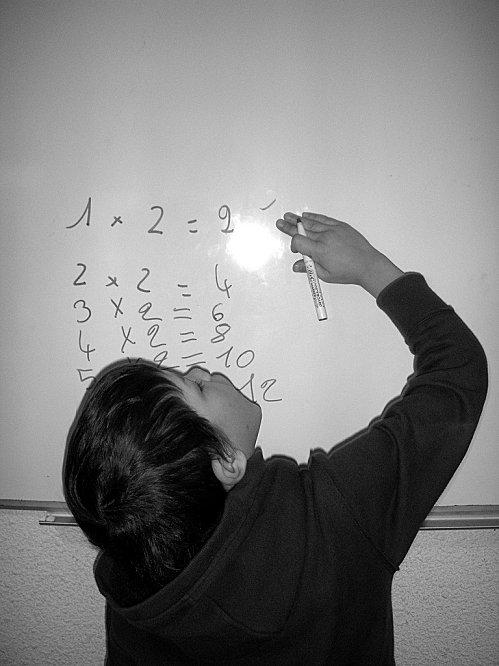 1 × 2 = 2
2 × 2 = 4
3 × 2 = 6
4 × 2 = 8
5 × 2 = 10
12